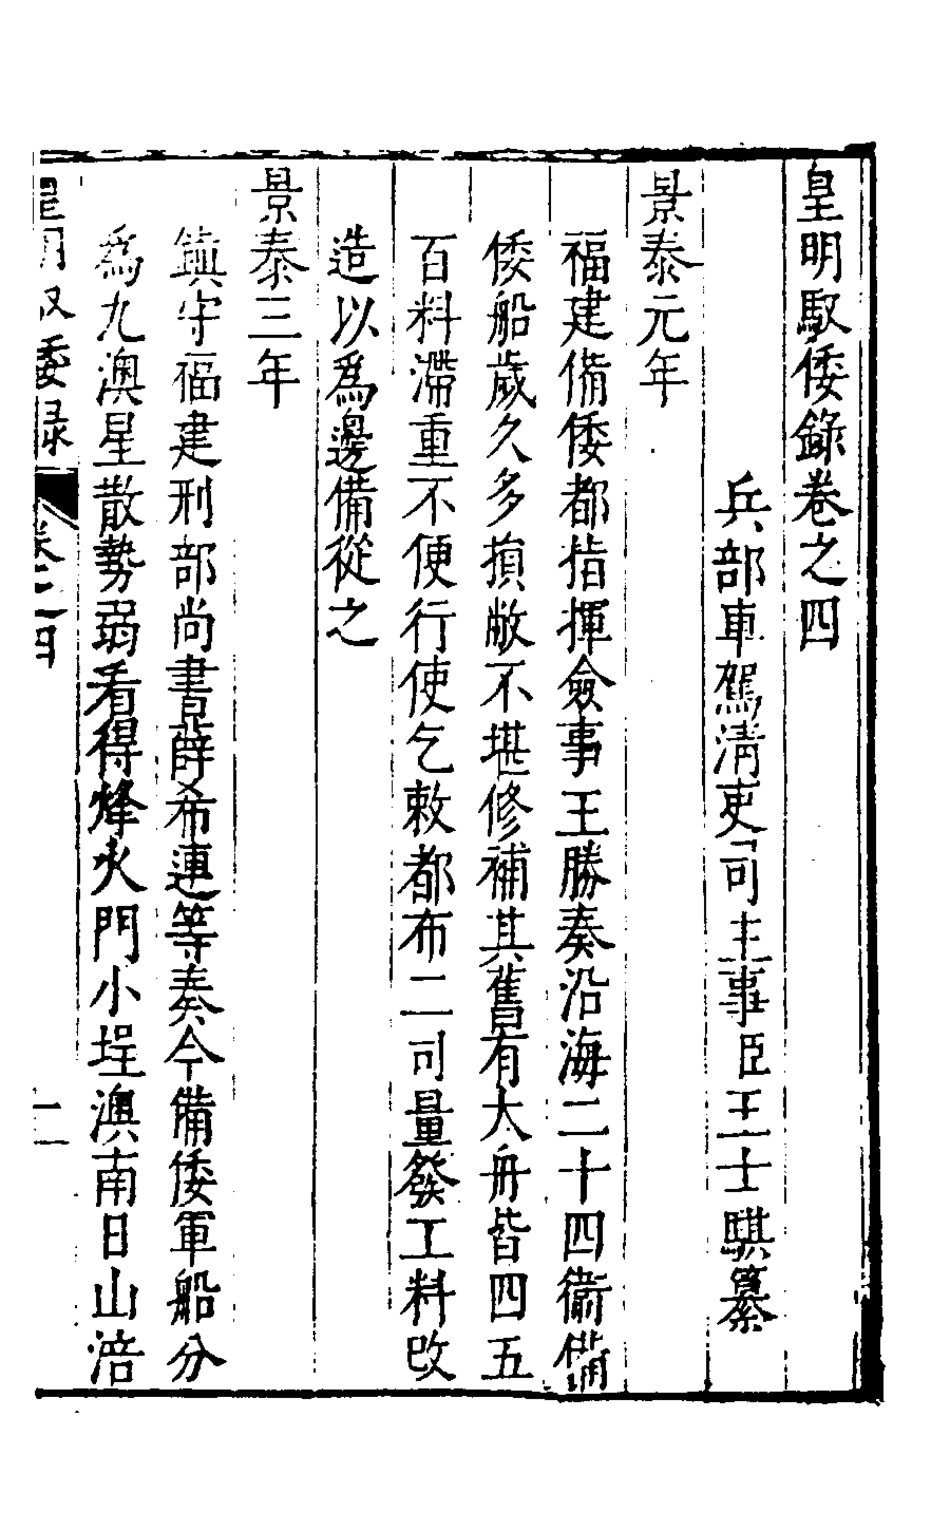 皇明馭倭錄卷之四
兵部車駕清吏司主事臣王士騏纂
景泰元年
福建備倭都指揮僉事王勝奏沿海二十四衛備
倭船歲久多損敝不堪修補其舊有大舟皆四五
百料滯重不便行使乞敕都布二司量發工料改
造以為邊備從之
景泰三年
鎮守福建刑部尚書薛希連等奏今備倭軍船分
為九澳星散勢弱看得烽火門小埕澳南日山浯
皇明馭倭錄 卷之四 一